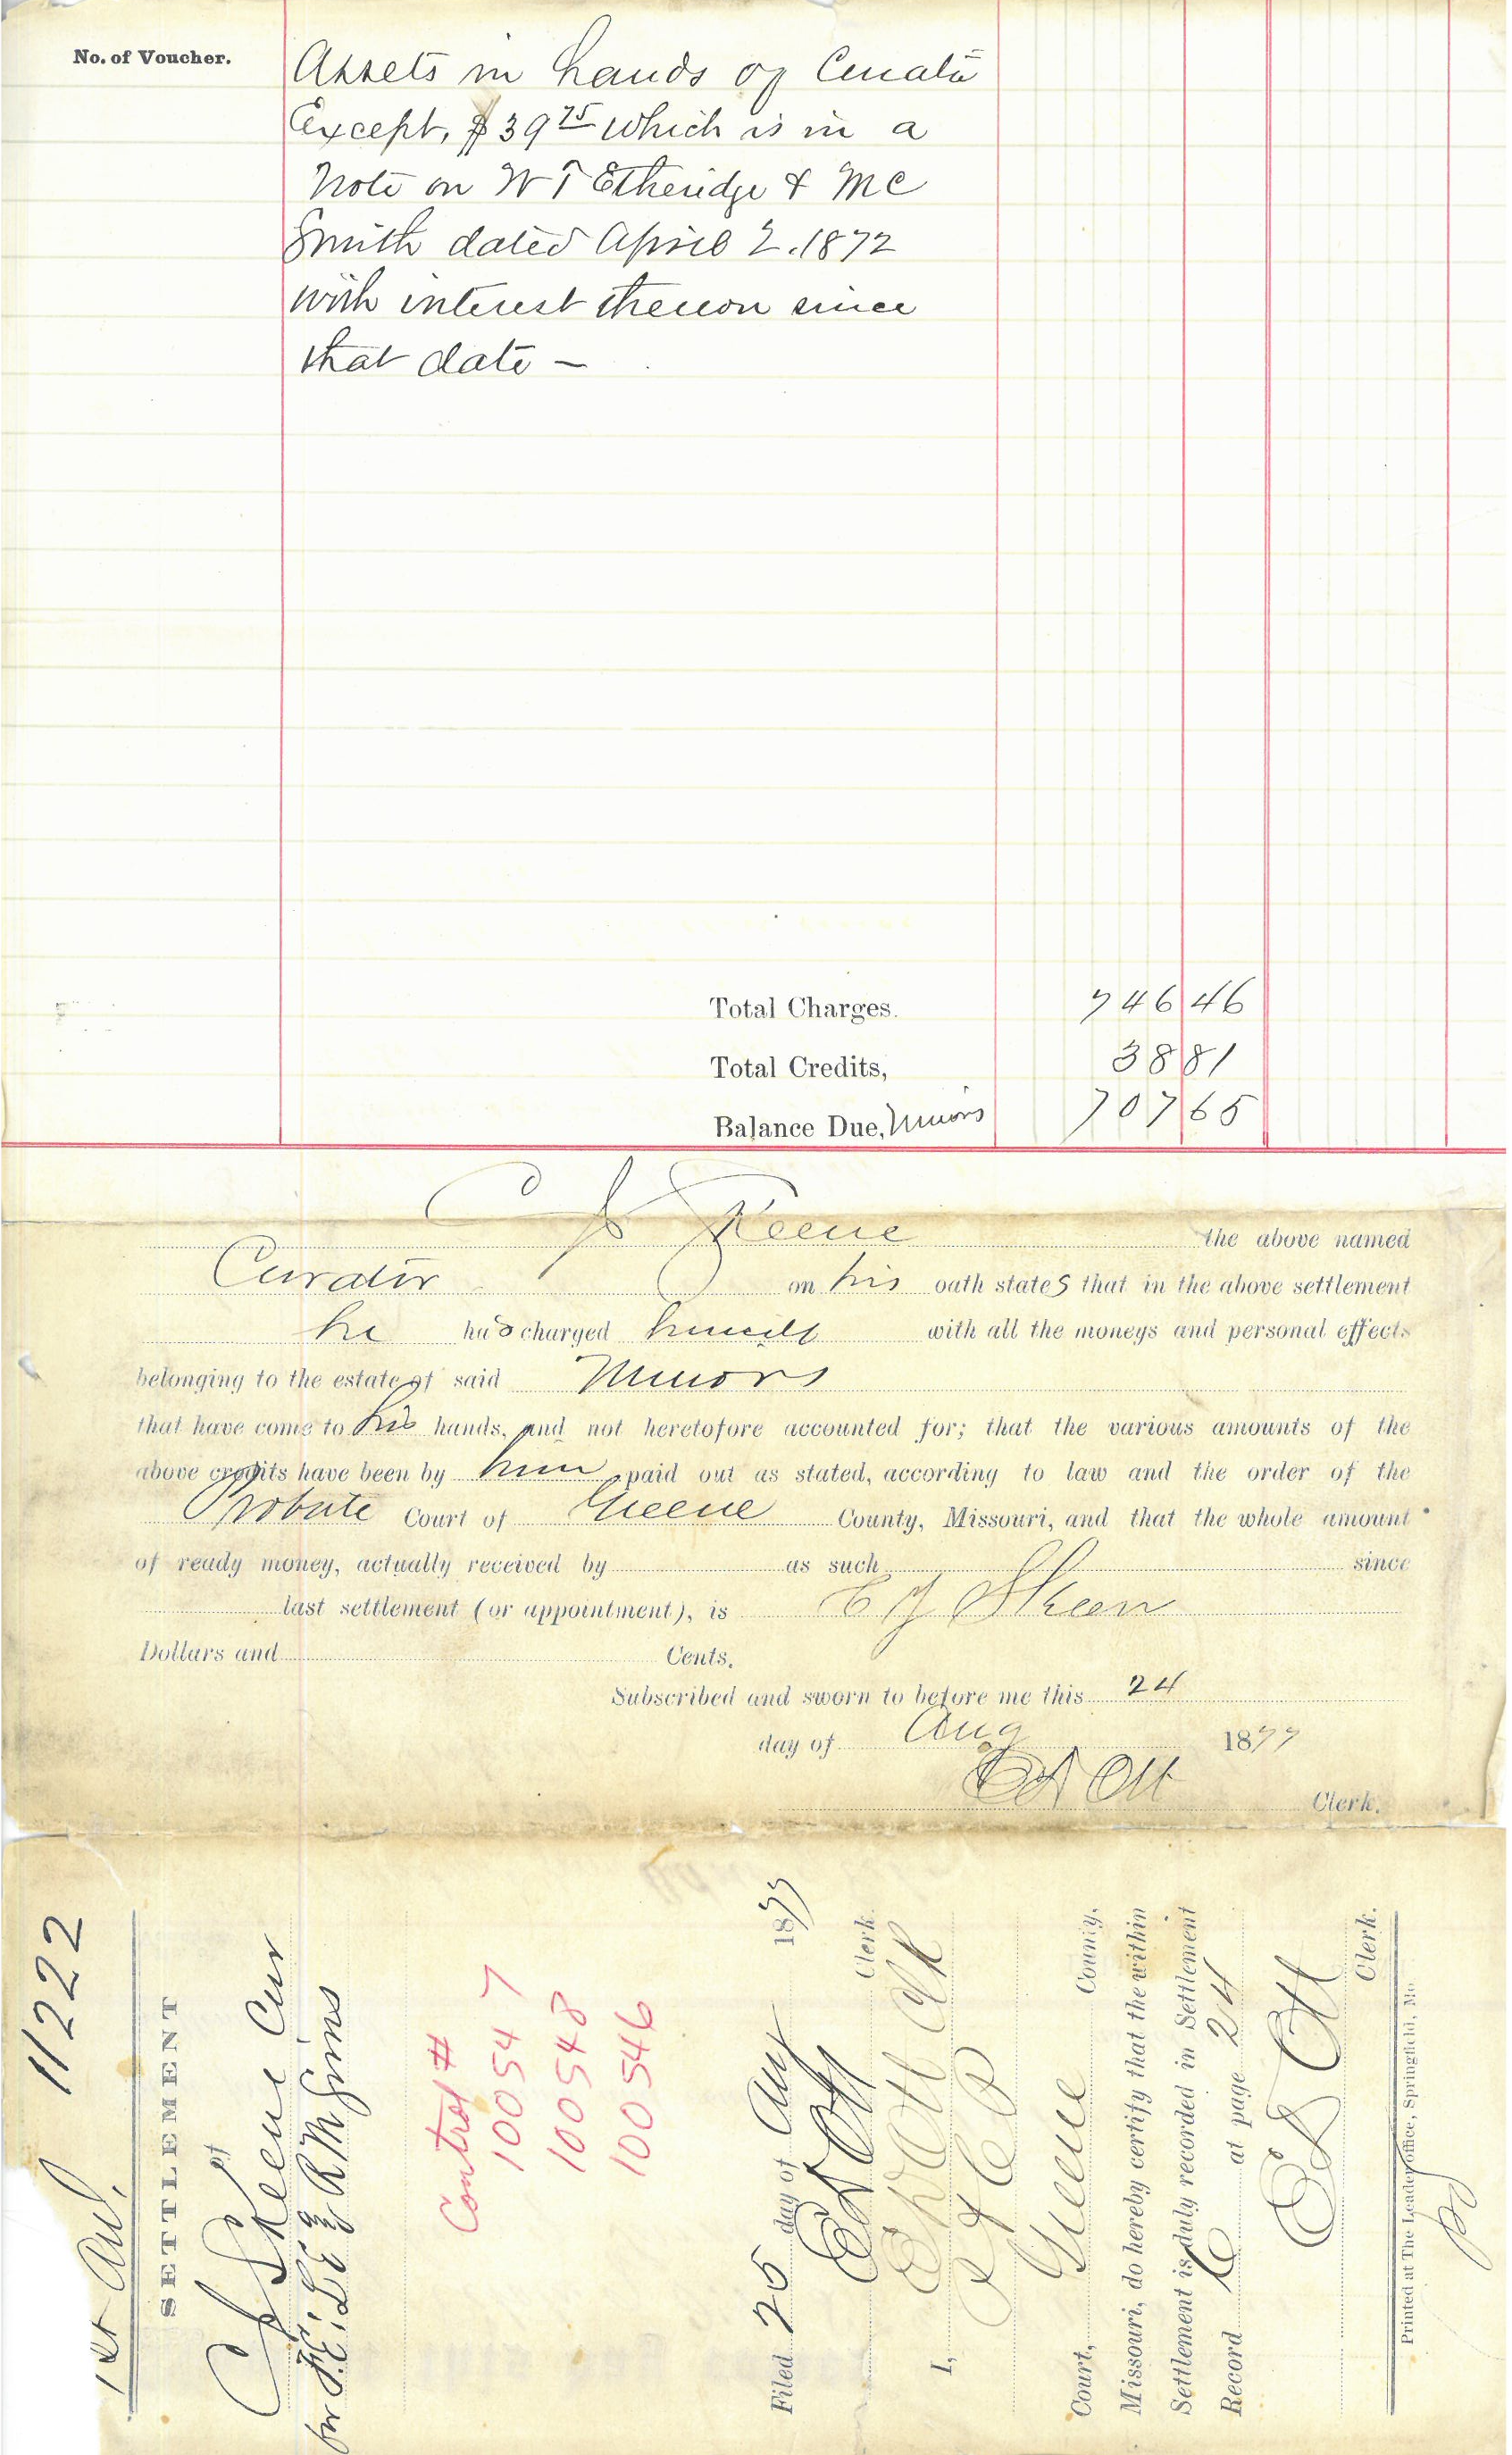 No. of Voucher.
Assets in hands of Curator
Except, $39 75 which is in a
Note on W T Etheridge & M C
Smith dated April 2. 1872
with interest thereon since
that date —
Total Charges. 746 46
Total Credits, 38 81
Balance Due, Minors 707 65
C J Skeene the above named
Curator on his oath states that in the above settlement
he has charged himself with all the moneys and personal effects
belonging to the estate of said Minors
that have come to his hands, and not heretofore accounted for; that the various amounts of the
above credits have been by him paid out as stated, according to law and the order of the
Probate Court of Greene County, Missouri, and that the whole amount
of ready money, actually received by as such since
last settlement (or appointment), is C J Skeen
Dollars and Cents.
Subscribed and sworn to before me this 24
day of Aug 1877
Ott Clerk.
1st 11222
SETTLEMENT
of
C J Skeene Cur
for R M Sims
Control #
100547
100548
100546
Filed 25 day of Aug 1877
Ott Clerk
Ott Clk
I,
Greene
Court, County,
Missouri, do hereby certify that the within
Settlement is duly recorded in Settlement
Record at page 24
Ott
Clerk.
Printed at The Leader Office, Springfield, Mo.